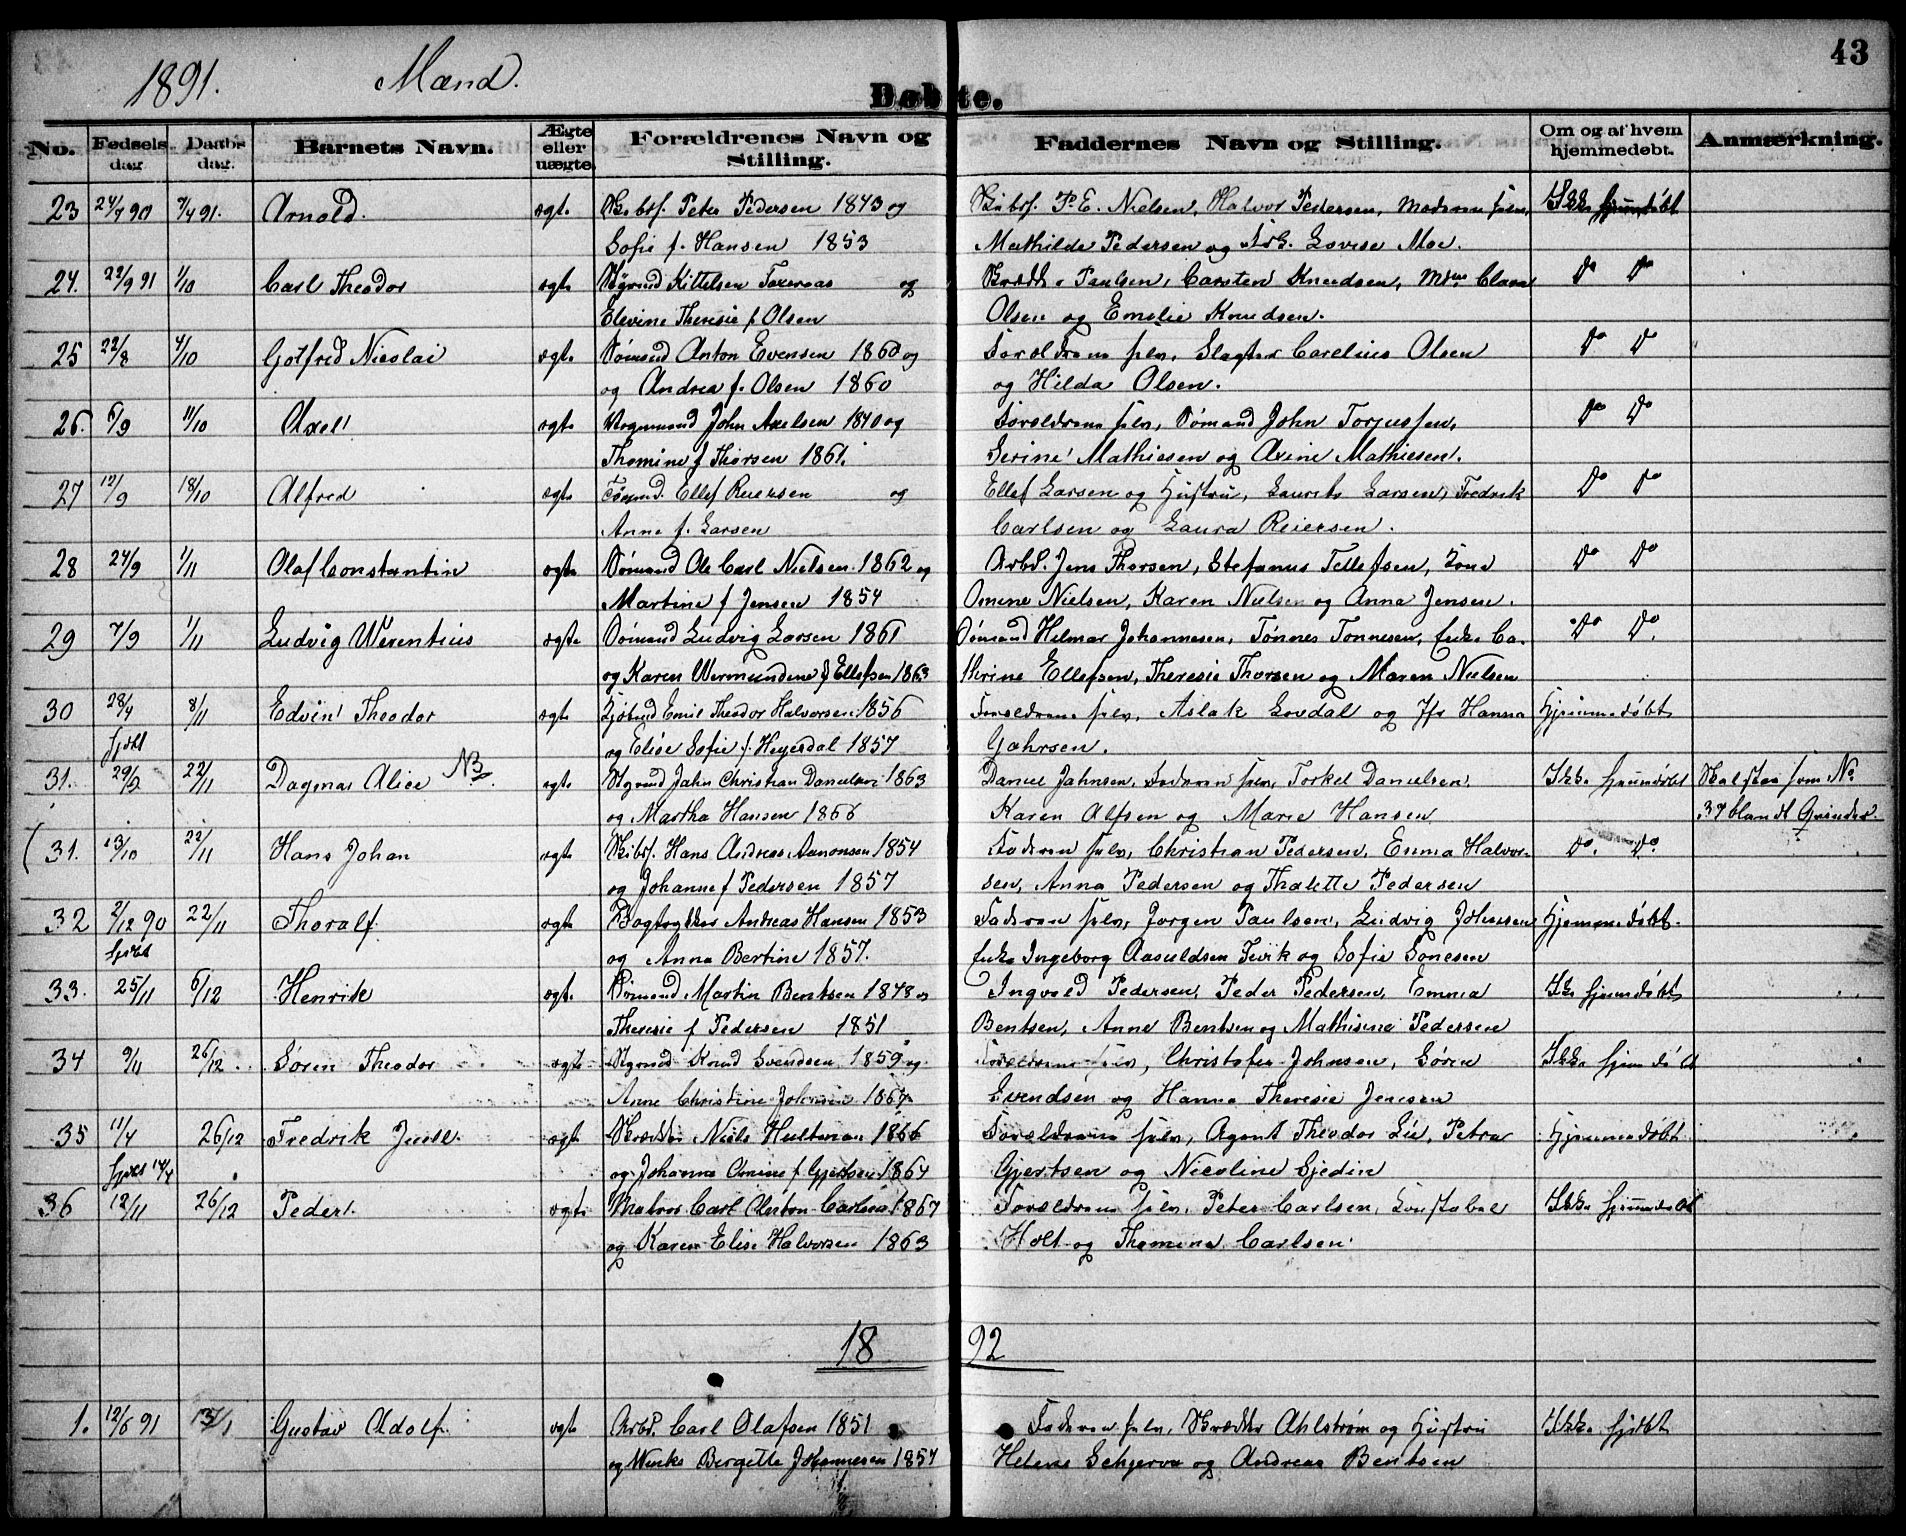 43
1891. Mænd.
Døbte.
No. Fødsels dag. Daabs dag. Barnets Navn. Ægte eller uægte. Forældrenes Navn og Stilling. Faddernes Navn og Stilling. Om og af hvem hjemmedøbt. Anmærkning.
23 24/7 90 7/4 91. Arnold. ægte Peter Pedersen 1843 og P. E. Nielsen, Halvor Pedersen, Moderen selv, Ikke hjemmedøbt
Sofie f. Hansen 1853 Mathilde Pedersen og Lovise Moe.
24. 22/9 91 1/10 Carl Theodor ægte Kittelsen og Paulsen, Carsten Knudsen, Clara Do Do
Elevine Theresie f. Olsen Olsen og Emelie Knudsen.
25 22/8 4/10 Gotfred Nicolai ægte Sømand Anton Evensen 1860 og Forældrene selv, Slagter Carelius Olsen Do Do
og Andrea f. Olsen 1860 og Hilda Olsen.
26. 6/9 11/10 Axel ægte John Axelsen 1840 og Forældrene selv, Sømand John Torjussen, Do Do
Thomine f Thorsen 1861. Serine Mathiesen og Axine Mathiesen.
27 12/9 18/10 Alfred ægte Ellef Reiersen og Ellef Larsen og Hustru, Laurits Larsen, Fredrik Do Do
Anne f. Larsen Carlsen og Laura Reiersen.
28 24/9 1/11 Olaf Constantin ægte Sømand Ole Carl Nielsen 1862 og Arbd. Jens Thorsen, Stefanus Tellefsen, Do Do
Martine f Jensen 1854 Omine Nielsen, Karen Nielsen og Anna Jensen.
29 7/9 1/11 Ludvig Werentius ægte Sømand Ludvig Larsen 1861 Sømand Hilmar Johannesen, Tønnes Tønnesen, Enke Ca- Do Do
og Karen Wermundine f Ellefsen 1863 thrine Ellefsen, Theresie Thorsen og Maren Nielsen
30 28/4 8/11 Edvin Theodor ægte Emil Theodor Halvorsen 1856 Forældrene selv, Aslak Lovdal og Jfr Hanna Hjemmedøbt
hjdbt og Elise Sofie f. Heyerdal 1857 Gahrsen.
31. 29/9 22/11 Dagmar Alice NB ægte John Christian Danielsen 1863 Daniel Jahnsen, Faderen selv, Torkel Danielsen, Ikke hjemmedøbt No
og Martha Hansen 1866 Karen Alfsen og Marie Hansen 37 blandt
(31. 13/10 22/11 Hans Johan ægte Hans Andreas Aanonsen 1854 Faderen selv, Christian Pedersen, Emma Halvor- Do. Do.
og Johanne f Pedersen 1857 sen, Anna Pedersen og Thalette Pedersen
32 2/12 90 22/11 Thoralf ægte Bogtrykker Andreas Hansen 1853 Faderen selv, Jørgen Paulsen, Ludvig Johnsen Hjemmedøbt
hjdbt og Anna Bertine 1857. Enke Ingeborg Aasuldsen og Sofie Sonesen
33. 25/11 6/12 Henrik ægte. Sømand Martin Bentsen 1848 og Ingvald Pedersen, Peder Pedersen, Emma Ikke hjemmedøbt
Theresie f Pedersen 1851 Bentsen, Anne Bentsen og Mathisine Pedersen
34 9/11 26/12. Søren Theodor ægte Knud Svendsen 1859 og Forældrene selv, Christofer Johnsen, Søren Ikke hjemmedøbt
Anne Christine Johnsen Svendsen og Hanna Theresie Jensen
35 11/4 26/12 Fredrik Juell ægte Skrædder Niels Hultman 1866 Forældrene selv, Agent Theodor Lie, Petra Hjemmedøbt
hjdbt 14/4 og Johanna Amine f Gjertsen 1864 Gjertsen og Nicoline Sjedin
36 12/11 26/12 Peder ægte Matros Carl Anton Carlsen 1867 Forældrene selv, Peter Carlsen, Konstabel Ikke hjemmedøbt
og Karen Elise Halvorsen 1863 Holt og Thomine Carlsen
1892
1. 12/6 91 Gustav Adolf ægte Arbd. Carl Olafsen 1851 Faderen selv, Skrædder Ahlstrøm og Hustru Ikke hjdbt
og Birgitte Johannesen 1857 Helene og Andreas Bentsen